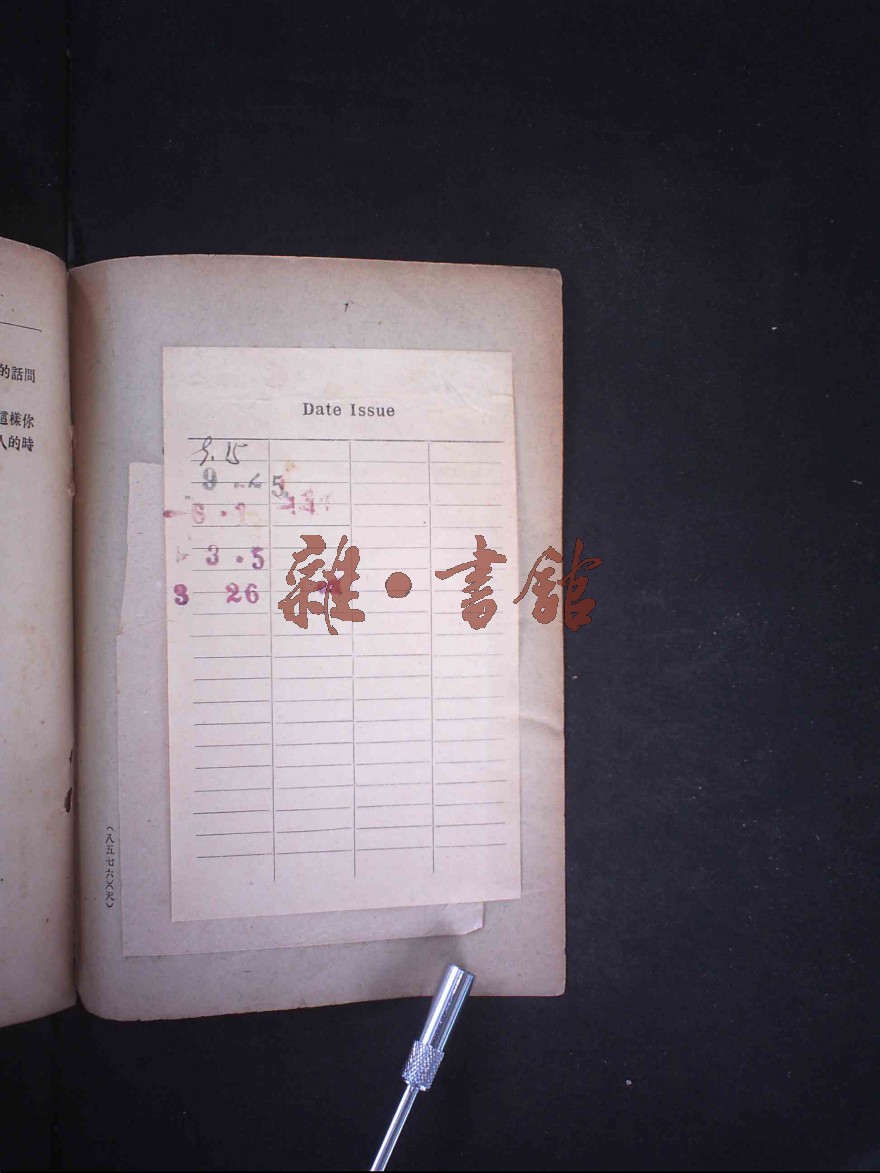 的話問
這樣你
人的時
Date Issue
9.15
9
5
6 · 1
3 · 5
3 26
雜·書館
(八五七六X天)